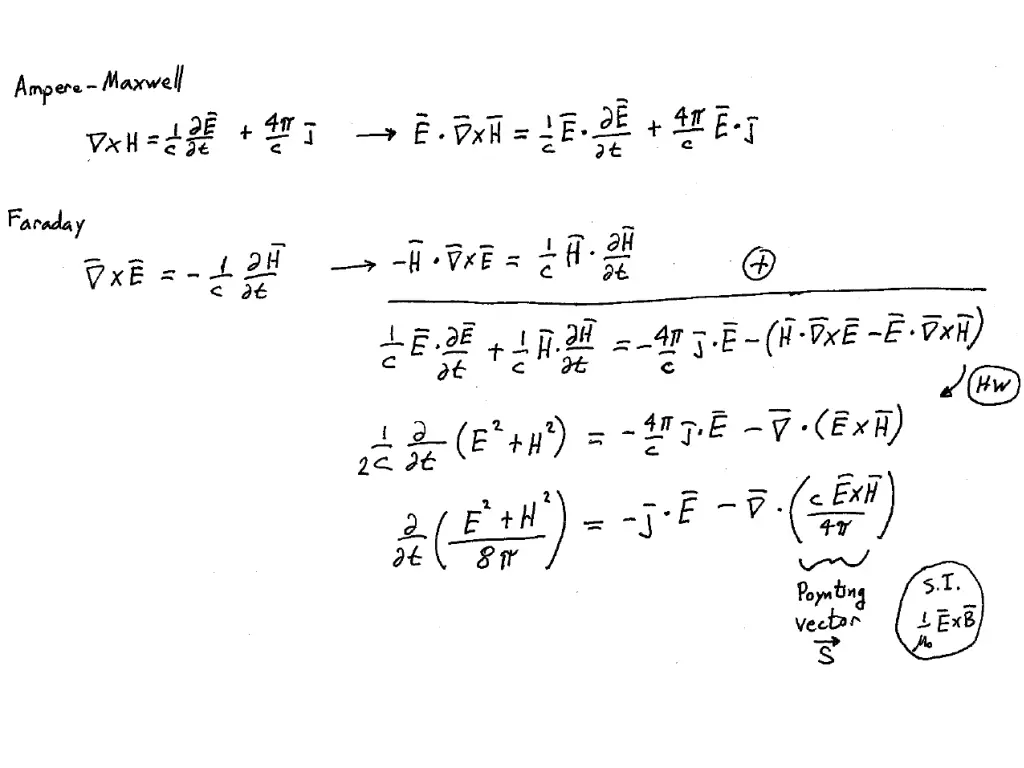 Ampere-Maxwell
∇×H = 1/c ∂Ē/∂t + 4π/c j̄ → Ē·∇̄×H̄ = 1/c Ē·∂Ē/∂t + 4π/c Ē·j̄
Faraday
∇̄×Ē = -1/c ∂H̄/∂t → -H̄·∇̄×Ē = 1/c H̄·∂H̄/∂t ⊕
1/c Ē·∂Ē/∂t + 1/c H̄·∂H̄/∂t = -4π/c j̄·Ē - (H̄·∇̄×Ē - Ē·∇̄×H̄)
HW
1/2c ∂/∂t (E²+H²) = -4π/c j̄·Ē - ∇̄·(Ē×H̄)
∂/∂t ((E²+H²)/8π) = -j̄·Ē - ∇̄·(c Ē×H̄/4π)
Poynting
vector
S⃗
S.I.
1/μ₀ Ē×B̄